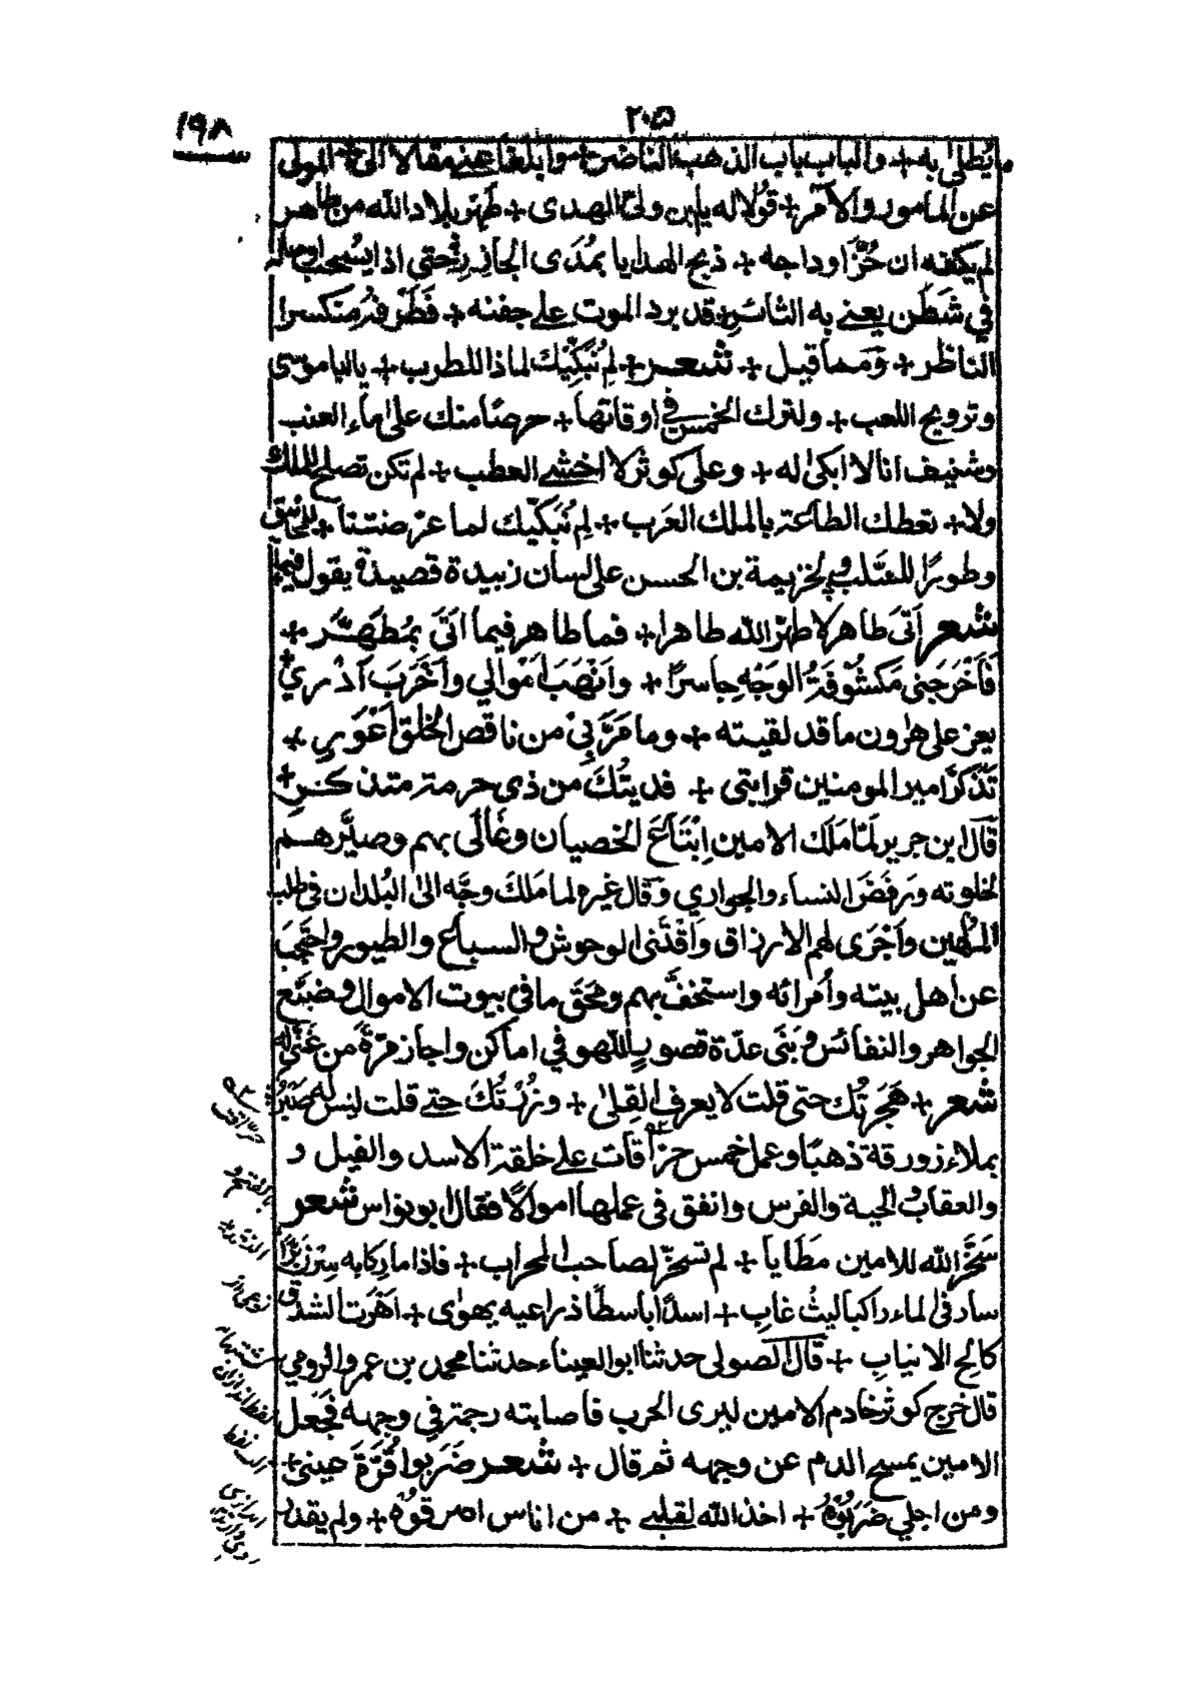 ٢٠٥
١٩٨
يُطلى به + والباب باب الذهب الناضر + وابلغا عني مقالا الى + المولى
عن المأمور والآمر + قولا له يا ابن ولي الهدى + طهّر بلاد الله من طاهر
لم يكفه ان حُزّ اوداجه + ذبح الهدايا بمُدَى الجازر + حتى اذا يسحب اوصاله
في شَطَن يعني به الثائر + قد برد الموت على جفنه + فَطَرفه منكسر
الناظر + ومما قيل + شعر + لِمَ نُبَكِّيك لماذا للطرب + يا ابا موسى
وترويج اللعب + ولترك الخمس في اوقاتها + حرصًا منك على ماء العنب
وشنيف انا لا ابكي له + وعلى كوثر لا اخشى العطب + لم تكن تصلح للملك
ولا + تعطك الطاعة بالملك العَرب + لِمَ نُبَكّيك لما عرّضتنا + للمجانيق
وطورًا للسّلب ولخزيمة بن الحسن على لسان زبيدة قصيدة يقول فيها
شعر أتى طاهر لا طهّر الله طاهرا + فما طاهر فيما اَتَى بمُطَهَّر +
فَأَخْرَجَنى مَكشُوفَةُ الوَجْهِ حاسرًا + وأنْهَبَ أمْوَالي وأخْرَبَ آدْرري +
يعز على هٰرون ما قد لقيته + وما مَرّ بِيْ من ناقص الخلق أعْوَرِ +
تَذَكرْ امير المومنين قرابتى + فديتُكَ من ذي حرمة متذكر +
قال ابن جرير لمّا مَلَك الامين اِبْتَاعَ الخصيان وغَالَى بهم وصيّرهم
لخلوته ورَفَضَ النساء والجواري وقال غيره لما مَلكَ وجَّه الى البُلدان في طلب
المُلهين وأجْرَى لهم الارزاق واقْتَنى الوحوش والسباع والطيور واحتَجَبَ
عن أهل بيته وأمرائه واستخفَّ بهم ومحَقَ ما في بيوت الاموال وضيّع
الجواهر والنفائس وبَنَى عدّة قصور للّهو في اماكن واجاز مرّةً من غَنّى له
شعر + هَجَرتُك حتى قلت لا يعرف القِلىٰ + وزُرتُكَ حتى قلت ليس له صَبْرُ +
بملاء زورقه ذهبًا وعمل خمس حرّاقات على خلقة الاسد والفيل و
والعقاب والحية والفرس وانفق في عملها اموالًا فقال ابو نواس شعر
سَخَّر الله للامين مَطَايا + لم تسخرّ لصاحب المحراب + فاذا ما ركابه سِرْنَ بَرًّا
سار في الماء راكبا ليثُ غابِ + اسدًا باسطًا ذراعيه يهوٰى + اهْرَت الشدق
كالح الانيابِ + قال الصولى حدثنا ابوالعيناء حدثنا محمد بن عمرو الرومي
قال خرج كوثر خادم الامين ليرى الحرب فاصابته رجمة في وجهه فَجَعل
الامين يمسح الدم عن وجهه ثم قال + شعر ضَرَبوا قُرّةَ عينى +
ومن اجلي ضَرَبُوْهُ + اخذ الله لقلبي + من اناس احرقوْهُ + ولم يقدر
حرّاقة
بالفتح و
التشديد